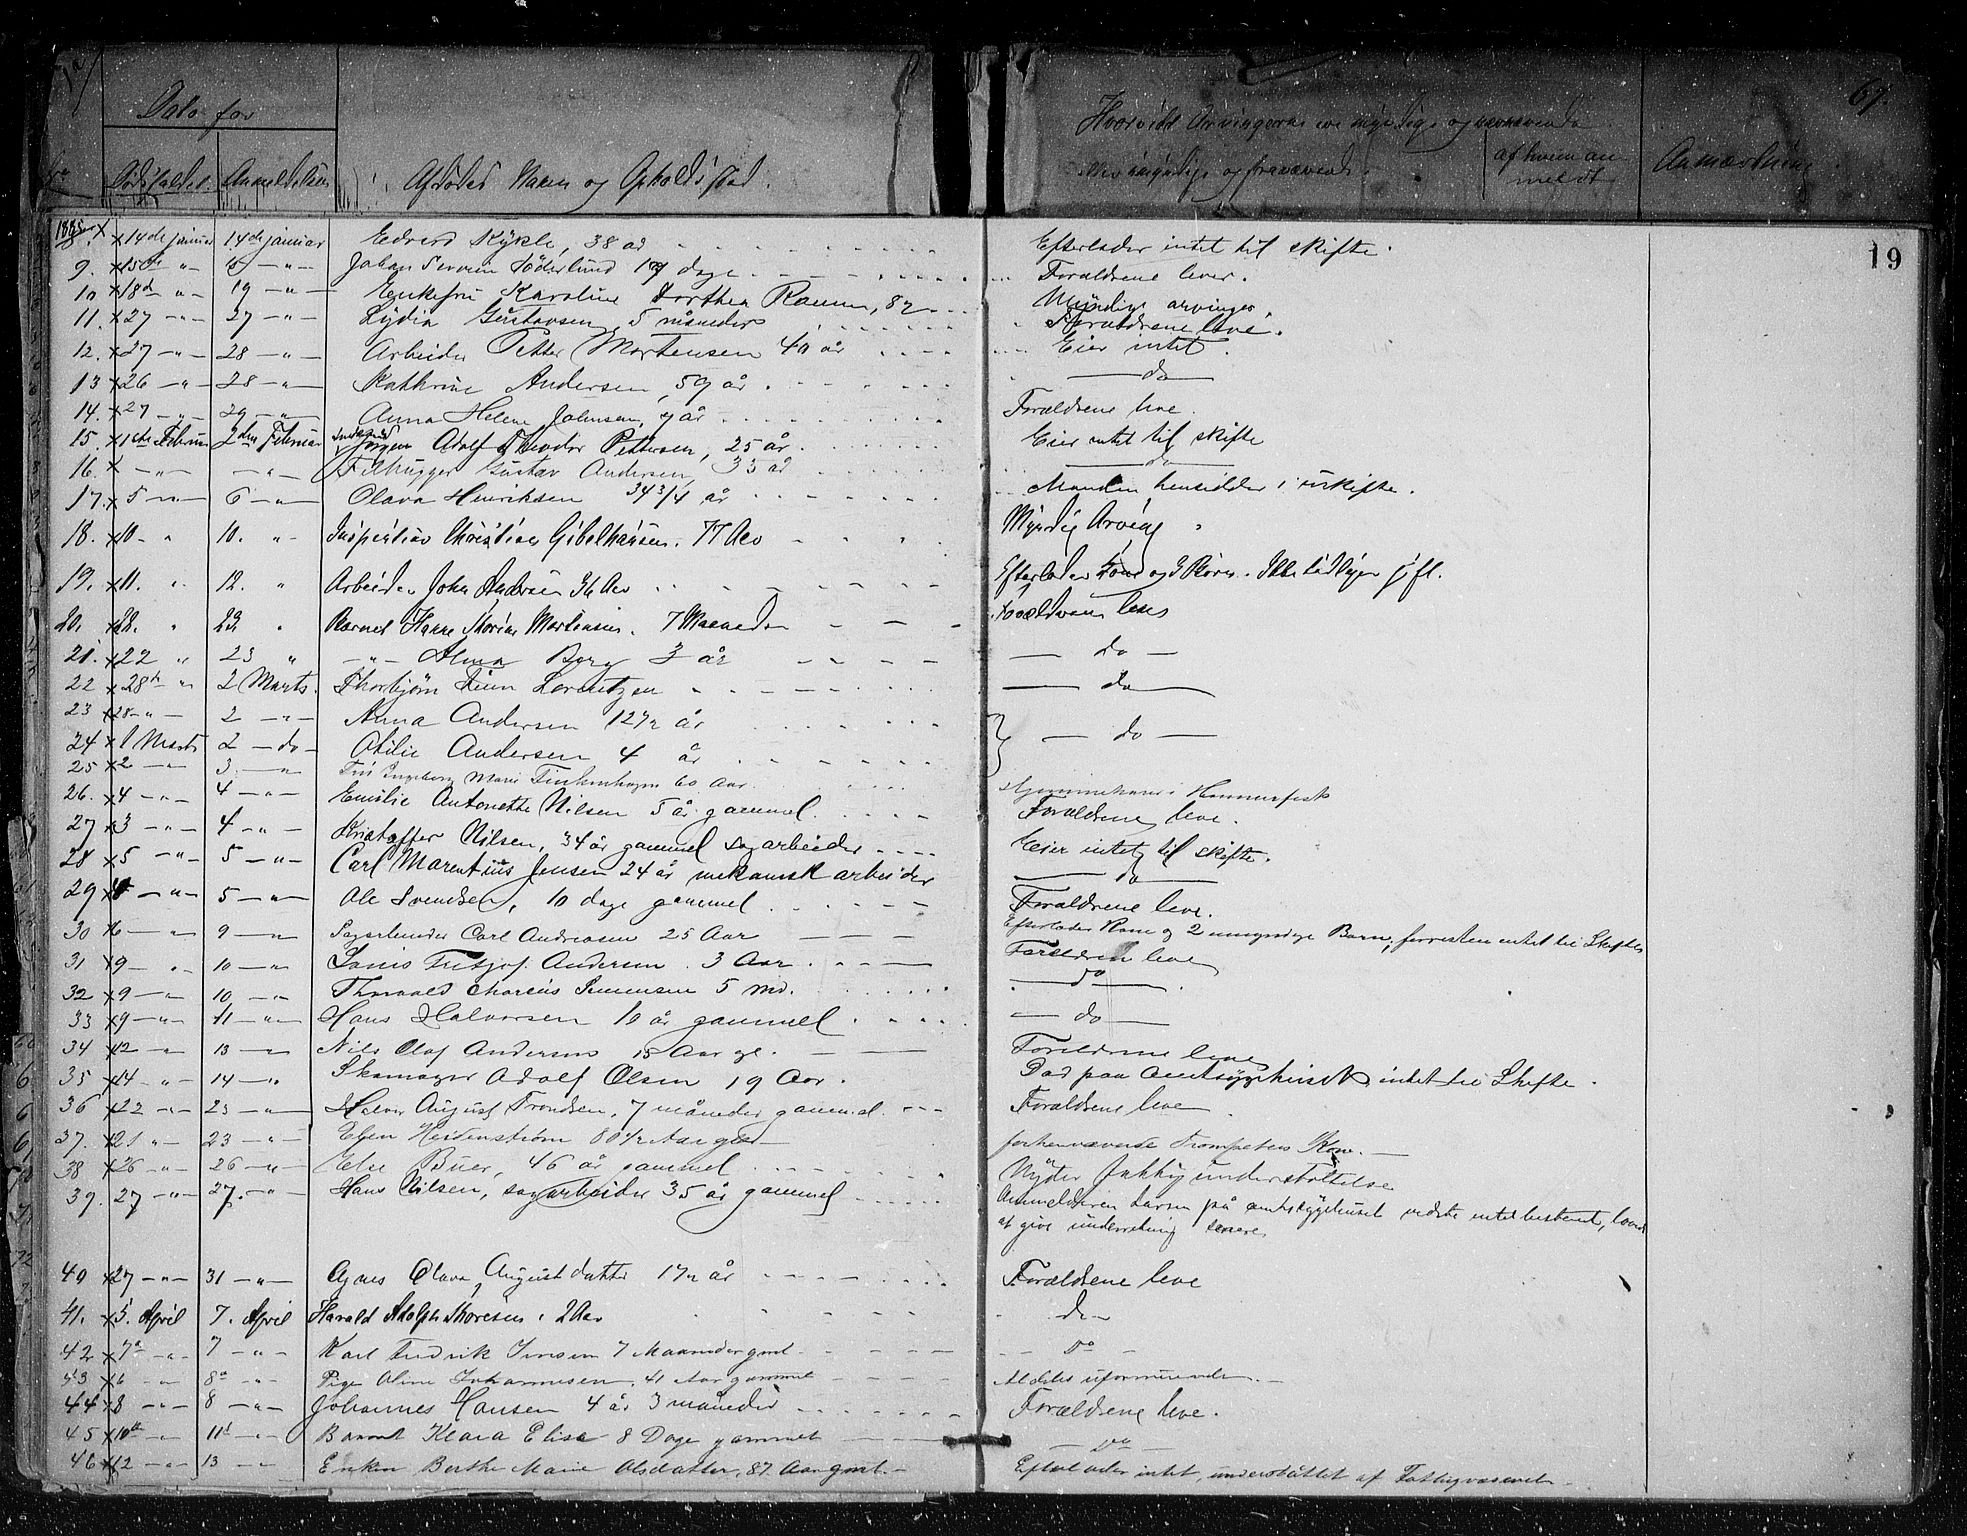 Dato for
Dødsfaldet. Anmeldelsen
Afdødes Navn og Opholdsstad.
Hvorvidt Arvingerne ere myndige og nærværende
eller umyndige og fraværende.
af hvem anmeldt
Anmærkning
67.
19
1885. x 14de januar 14de januar Edvard Kykle, 38 år Efterlader intet til skifte.
9. x 15de " 15 — " — Johan Søderlund dage Forældrene lever.
10 x 18d " — 19 — " — Enkefru Karoline Dorthea 82 Myndige arvinger.
11. x 27 — " — 27 — " — Lydia Gustavsen, 5 måneder Forældrene leve.
12. x 27 — " — 28 — " — Arbeider Petter Mortensen 40 år Eier intet.
13 x 26 — " — 28 — " — Kathrine Andersen, 59 år. — do —
14. x 27 — " — 29 — " — Anna Helene Johnsen, år Forældrene leve.
15. x 1ste Februar 2den Februar Adolf Theodor Pettersen, 25 år. Eier intet til skifte
16. x — " — — " — Filhugger Gustav Andersen, 33 år — do —
17. x 5 — " — 6 — " — Olava Henriksen 34 3/4 år Manden hensidder i uskifte.
18. x 10 — " 10. " — Inspektør Christian Gibelhausen. 77 Aar Myndig Arving.
19. x 11. " 12. " Arbeider John Andersen 36 Aar Efterlader Kone og 3 Børn.
20. x 22. " 23. " Barnet Mortensen. 7 Maaneder Forældrene leve
21. x 22 " 23 " — " — Alma Berg 3 år — do —
22 x 28de " 2 Marts. Thorbjørn Lorentzen — do —
23 x 28 — " — 2 — " — Anna Andersen 12 1/2 år — do —
24 x 1 Marts 2 — do — Otilie Andersen 4 år
25 x 2 — " 3. — " Fru Ingeborg Marie Finkenhagen 60 Aar. Hjemmehørende i Hammerfest
26. x 4 — " — 4 — " — Emilie Antonette Nilsen 5 år gammel. Forældrene leve.
27 x 3 — " — 4 — " — Kristoffer Nilsen, 34 år gammel sagarbeider Eier intet til skifte.
28 x 5 — " — 5 — " — Carl Marentius Jensen 24 år mekanisk arbeider — do —
29 x — " — 5 — " — Ole Svendsen, 10 dage gammel Forældrene leve.
30 x 6 — " 9 — " Sagarbeider Carl Andreasen 25 Aar Efterlader Kone og 2 umyndige Børn, forresten intet til Skifte
31 x 9 — " 10 — " Fritjof Andersen. 3 Aar Forældrene leve
32 x 9 — " 10 — " Thorvald 5 Md. — Do —
33 x 9 — " — 11 — " — Hans Halvorsen 10 år gammel — do —
34 x 12 — " 13 — " Nils Olaf Andersen 15 Aar gl. Forældrene leve
35 x 14 — " 14 — " Skomager Adolf Olsen 19 Aar. Død paa Amtssygehuset, intet til Skifte.
36 x 22 — " — 23 — " — August Trondsen, 7 måneder gammel Forældrene leve
37. x 21 " — 23 — " — Elen Heidenstrøm 80 1/2 Aar gml forhenværende Trompeters Kone. —
38 x 26 — " — 26 — " — Else Buer, 46 år gammel Nyder understøttelse
39. 27 — " — 27. — " — Hans Nilsen, sagarbeider 35 år gammel Anmelderen Larsen på amtssygehuset vidste intet bestemt, lovede
at give underretning senere
40 x 27 — " — 31 — " — Agnes Olava Augustdatter 1 1/2 år Forældrene leve
41. x 5. April 7. April Harald Adolph Thoresen. 2 Aar do
42 x 7de — " — 7 — " — Karl Fredrik Jensen 7 Maaneder gml. Do —
43 x 6 — " 8de — " Pige Oline Johannesen, 41 Aar gammel Aldeles uformuende. —
44 x 8 — " — 8 — " — Johannes Hansen 4 år 3 måneder Forældrene leve.
45 x 10de — " 11te — " Barnet Klara Elise 8 Dage gammel — Do —
46 x 12 — " — 13 — " Enken Berthe Marie Olsdatter, 87 Aar gml. — Efterlader intet, understøttet af Fattigvæsenet —